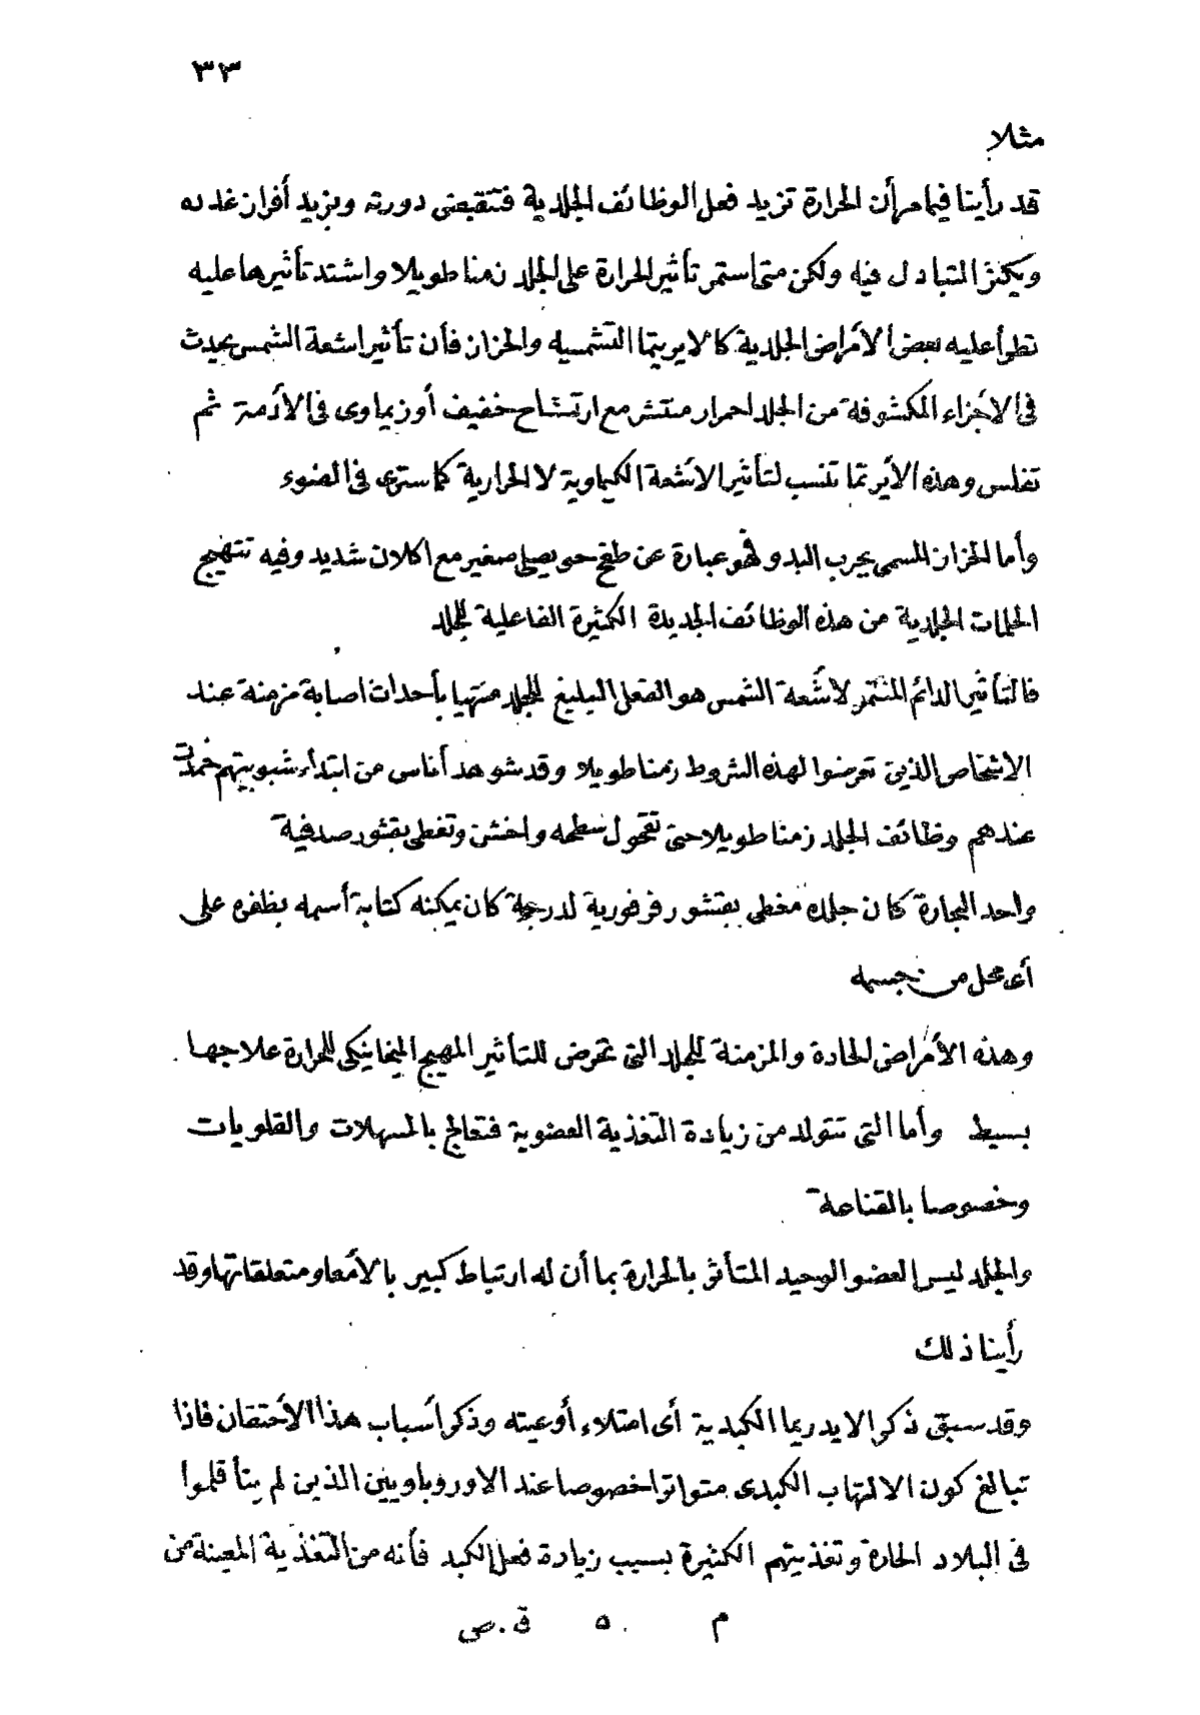 ٣٣
مثلا
قد رأينا فيما مر أن الحرارة تزيد فعل الوظائف الجلدية فتنقبض دورته ويزيد أفراز غدده
ويكثر المتبادل فيه ولكن متى استمر تأثير الحرارة على الجلد زمنا طويلا واشتد تأثيرها عليه
تطرأ عليه بعض الأمراض الجلدية كالايريتما التشمسية والحزاز فأن تأثير اشعة الشمس يحدث
فى الاجزاء المكشوفة من الجلد احمرار منتشر مع ارتشاح خفيف أوزيماوى فى الأدمة ثم
تفلس وهذه الأيريتما تنسب لتأثير الاشعة الكيماوية لا الحرارية كما سترى فى الضوء
وأما الحزاز المسمى بجرب البدو فهو عبارة عن طفح حويصلى صغير مع اكلان شديد وفيه تتهيج
الحلمات الجلدية من هذه الوظائف الجديدة الكثيرة الفاعلية للجلد
فالتأثير الدائم المستمر لأشعة الشمس هو الفعل البليغ للجلد منتهيا بأحداث اصابة مزمنة عند
الاشخاص الذين تعرضوا لهذه الشروط زمنا طويلا وقد شوهد أناس من ابتداء شبوبيتهم خمدت
عندهم وظائف الجلد زمنا طويلا حتى تقحول سطحه واخشن وتغطى بقشور صدفية
واحد البحارة كان جلده مغطى بقشور فرفورية لدرجة كان يمكنه كتابة أسمه بظفره على
أى محل من جسمه
وهذه الأمراض الحادة والمزمنة للجلد التى تحرض للتأثير المهيج الميخانيكى للحرارة علاجها
بسيط وأما التى تتولد من زيادة التغذية العضوية فتعالج بالمسهلات والقلويات
وخصوصا بالقناعة
والجلد ليس العضو الوحيد المتأثر بالحرارة بما أن له ارتباط كبير بالأمعاء ومتعلقاتها وقد
رأينا ذلك
وقد سبق ذكر الايدريما الكبدية أى امتلاء أوعيته وذكر أسباب هذا الأحتقان فاذا
تبالغ كون الالتهاب الكبدى متواترا خصوصا عند الاوروباويين الذين لم يتأقلموا
فى البلاد الحارة وتغذيتهم الكثيرة بسبب زيادة فعل الكبد فأنه من التغذية المعينة من
م ٥ ق . ص